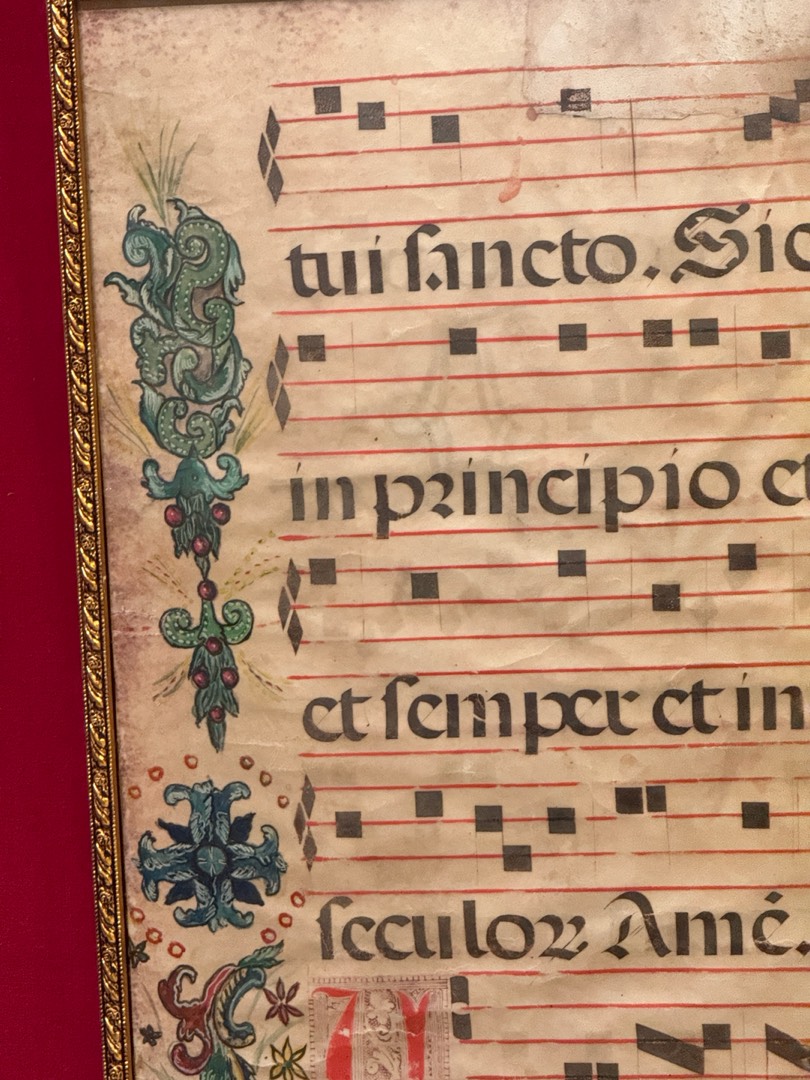 tui sancto. Sic
in principio et
et semper et in
seculoꝝ Amé.